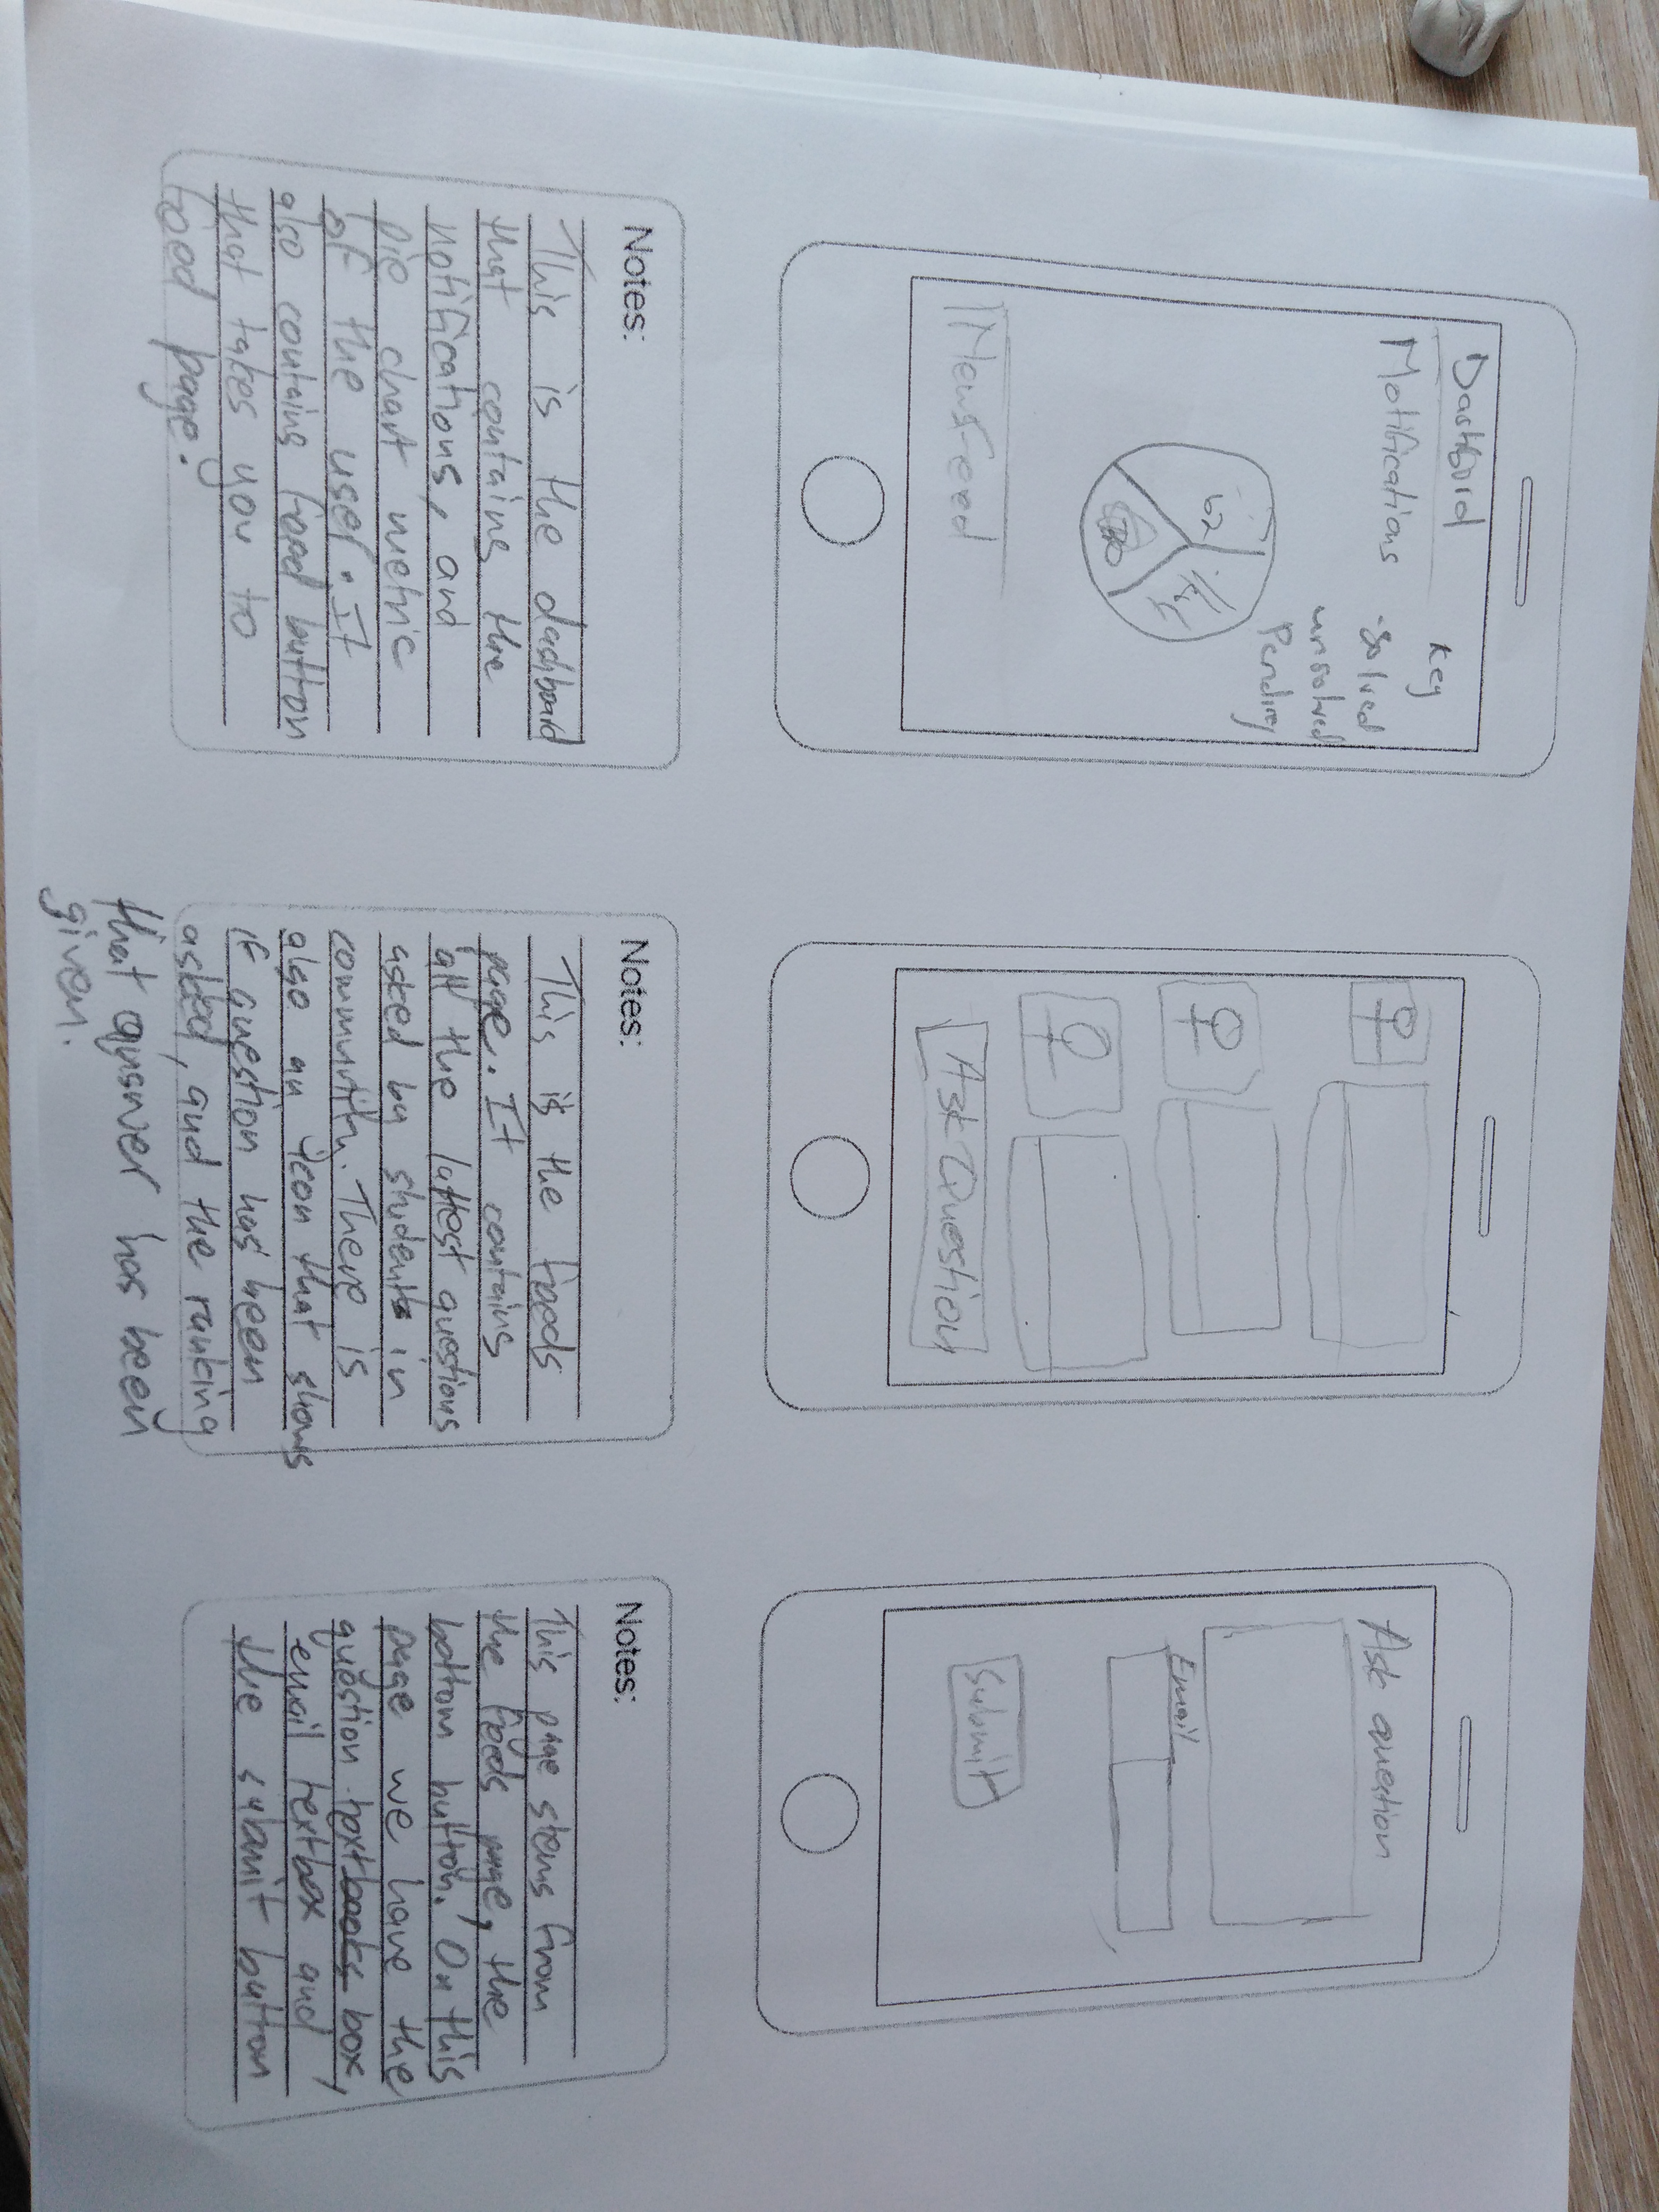 Dashbord
Motifications
key
-solved
unsolved
Pending
Newsfeed
Notes:
This is the dashboard
that contains the
notifications, and
pie chart metric
of the user. It
also contains feed button
that takes you to
feed page.
Ask Question
Notes:
This is the feeds
page. It contains
all the lattest questions
asked by students in
community. There is
also an icon that shows
if question has been
asked, and the ranking
that answer has been
given.
Ask question
Email
Submit
Notes:
This page stems from
the feeds page, the
bottom button. On this
page we have the
question box,
email textbox and
the submit button